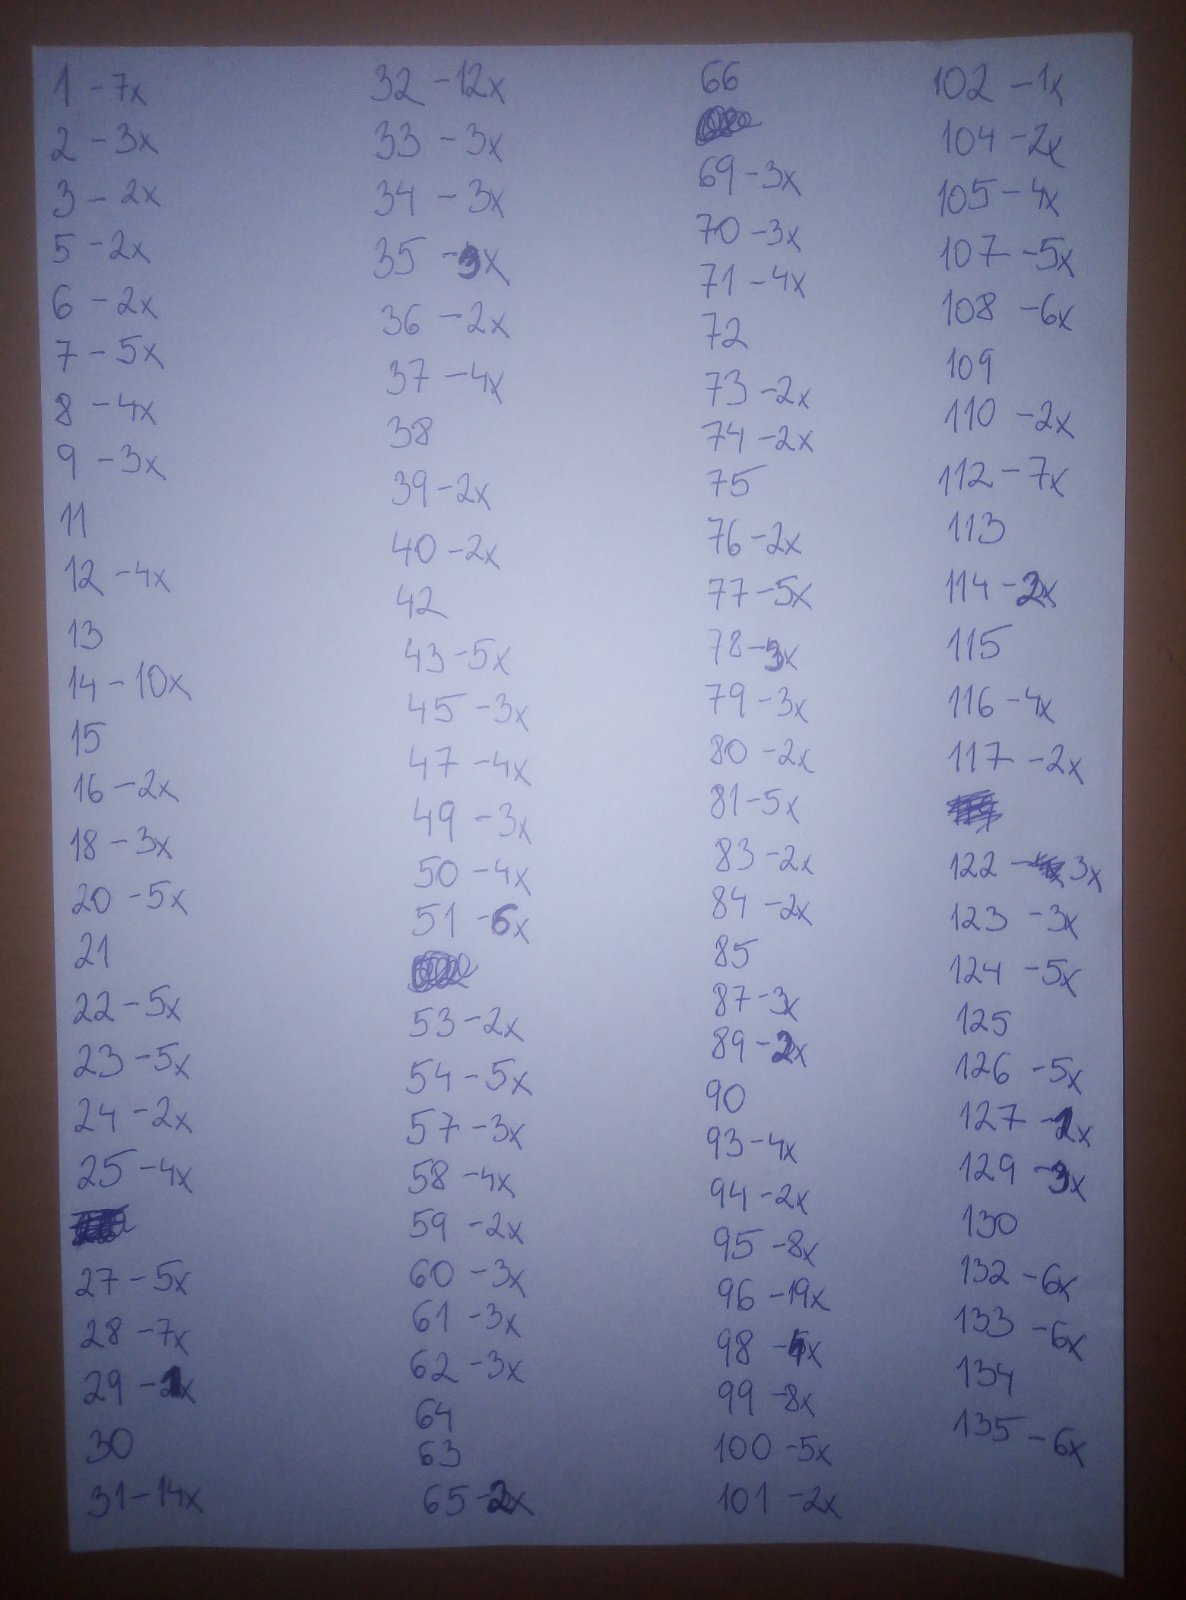 1 - 7x
2 - 3x
3 - 2x
5 - 2x
6 - 2x
7 - 5x
8 - 4x
9 - 3x
11
12 - 4x
13
14 - 10x
15
16 - 2x
18 - 3x
20 - 5x
21
22 - 5x
23 - 5x
24 - 2x
25 - 4x
27 - 5x
28 - 7x
29 - 1x
30
31 - 14x
32 - 12x
33 - 3x
34 - 3x
35 - 3x
36 - 2x
37 - 4x
38
39 - 2x
40 - 2x
42
43 - 5x
45 - 3x
47 - 4x
49 - 3x
50 - 4x
51 - 6x
53 - 2x
54 - 5x
57 - 3x
58 - 4x
59 - 2x
60 - 3x
61 - 3x
62 - 3x
64
63
65 - 2x
66
69 - 3x
70 - 3x
71 - 4x
72
73 - 2x
74 - 2x
75
76 - 2x
77 - 5x
78 - 3x
79 - 3x
80 - 2x
81 - 5x
83 - 2x
84 - 2x
85
87 - 3x
89 - 2x
90
93 - 4x
94 - 2x
95 - 8x
96 - 19x
98 - x
99 - 8x
100 - 5x
101 - 2x
102 - 1x
104 - 2x
105 - 4x
107 - 5x
108 - 6x
109
110 - 2x
112 - 7x
113
114 - 2x
115
116 - 4x
117 - 2x
122 - 3x
123 - 3x
124 - 5x
125
126 - 5x
127 - x
129 - 3x
130
132 - 6x
133 - 6x
134
135 - 6x